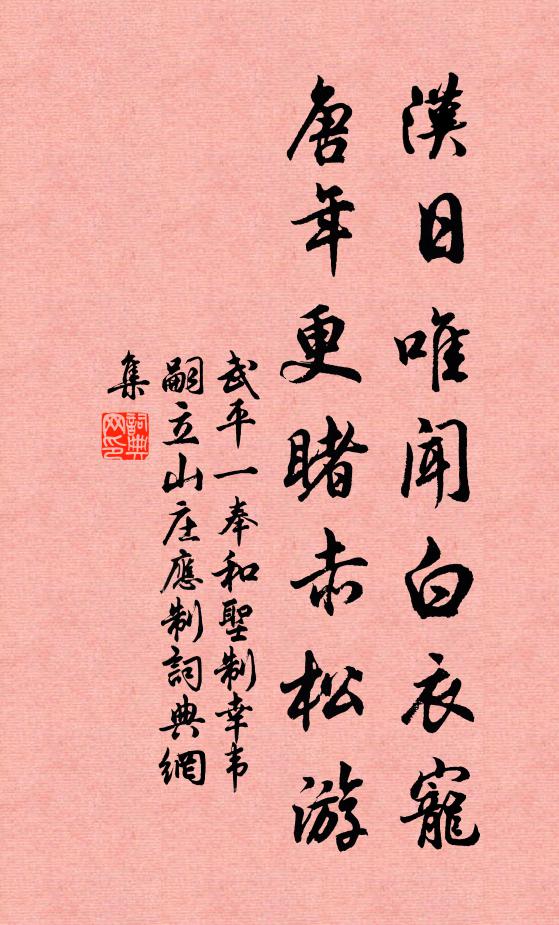 漢日唯聞白衣寵
唐年更睹赤松游
武平一奉和聖制幸韦
嗣立山庄應制詞典網
集
詞典
网印